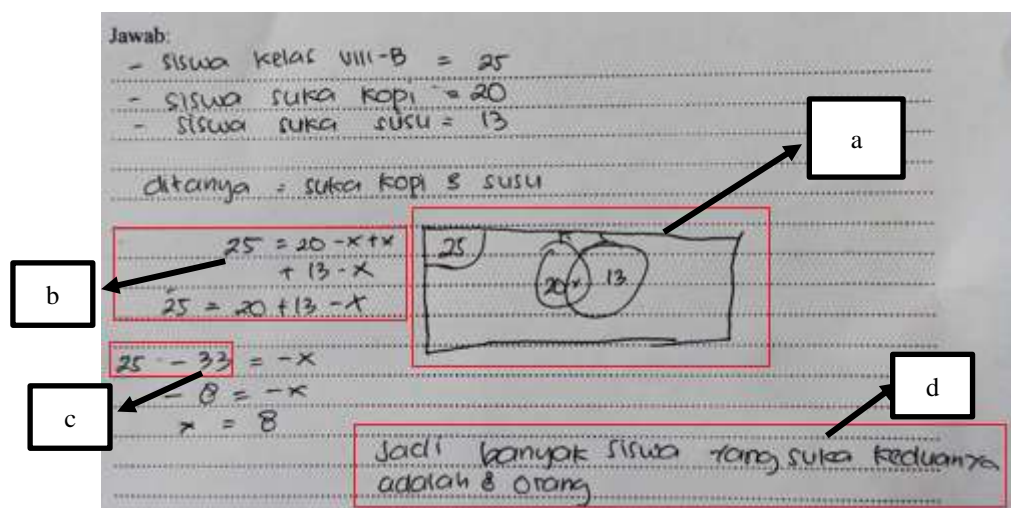 Jawab:
- siswa kelas VIII-B = 25
- siswa suka kopi = 20
- siswa suka susu = 13
a
ditanya = suka kopi & susu
25 = 20 - x + x
+ 13 - x
25 = 20 + 13 - x
b
25
K S
20 x 13
25 - 33 = -x
- 8 = -x
x = 8
c
d
Jadi banyak siswa yang suka keduanya
adalah 8 orang